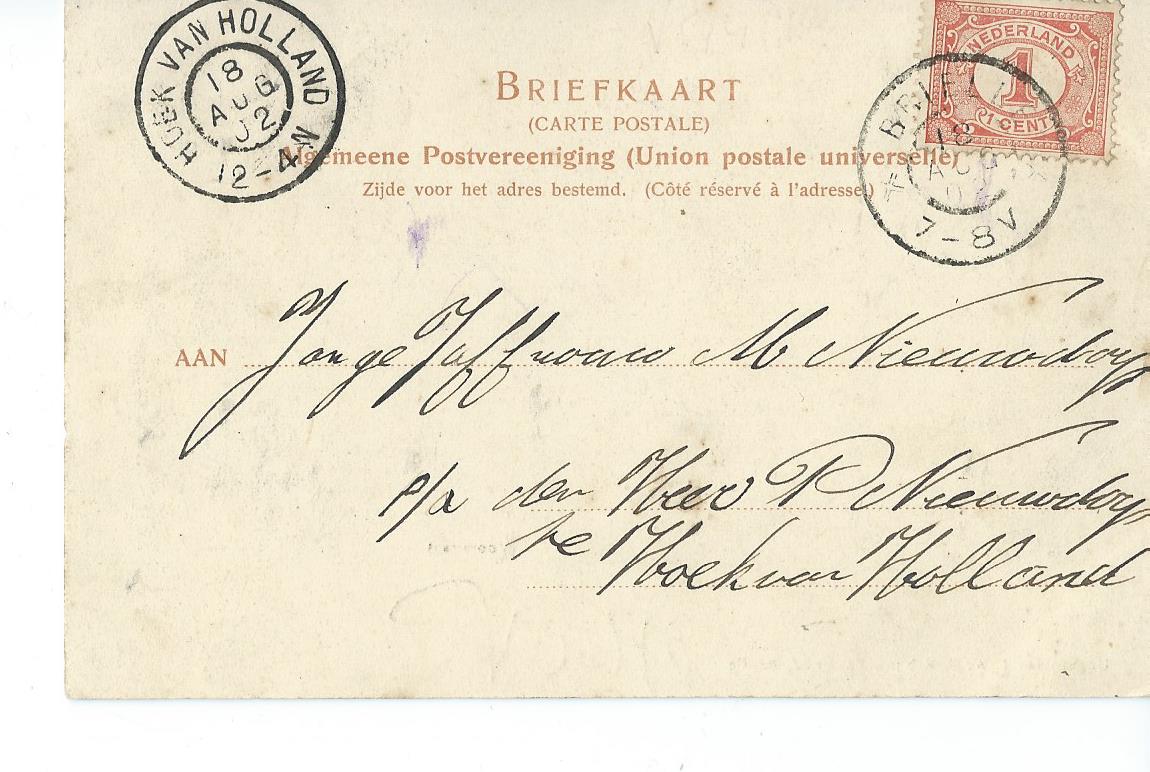 HOEK VAN HOLLAND
18
AUG
02
12-4N
NEDERLAND
1
1 CENT
BRIELLE
18
AUG
0
7-8V
BRIEFKAART
(CARTE POSTALE)
Algemeene Postvereeniging (Union postale universelle)
Zijde voor het adres bestemd. (Côté réservé à l'adresse)
AAN Jonge Juffrouw M Nieuwdorp
p/a den Heer P Nieuwdorp
te Hoek van Holland